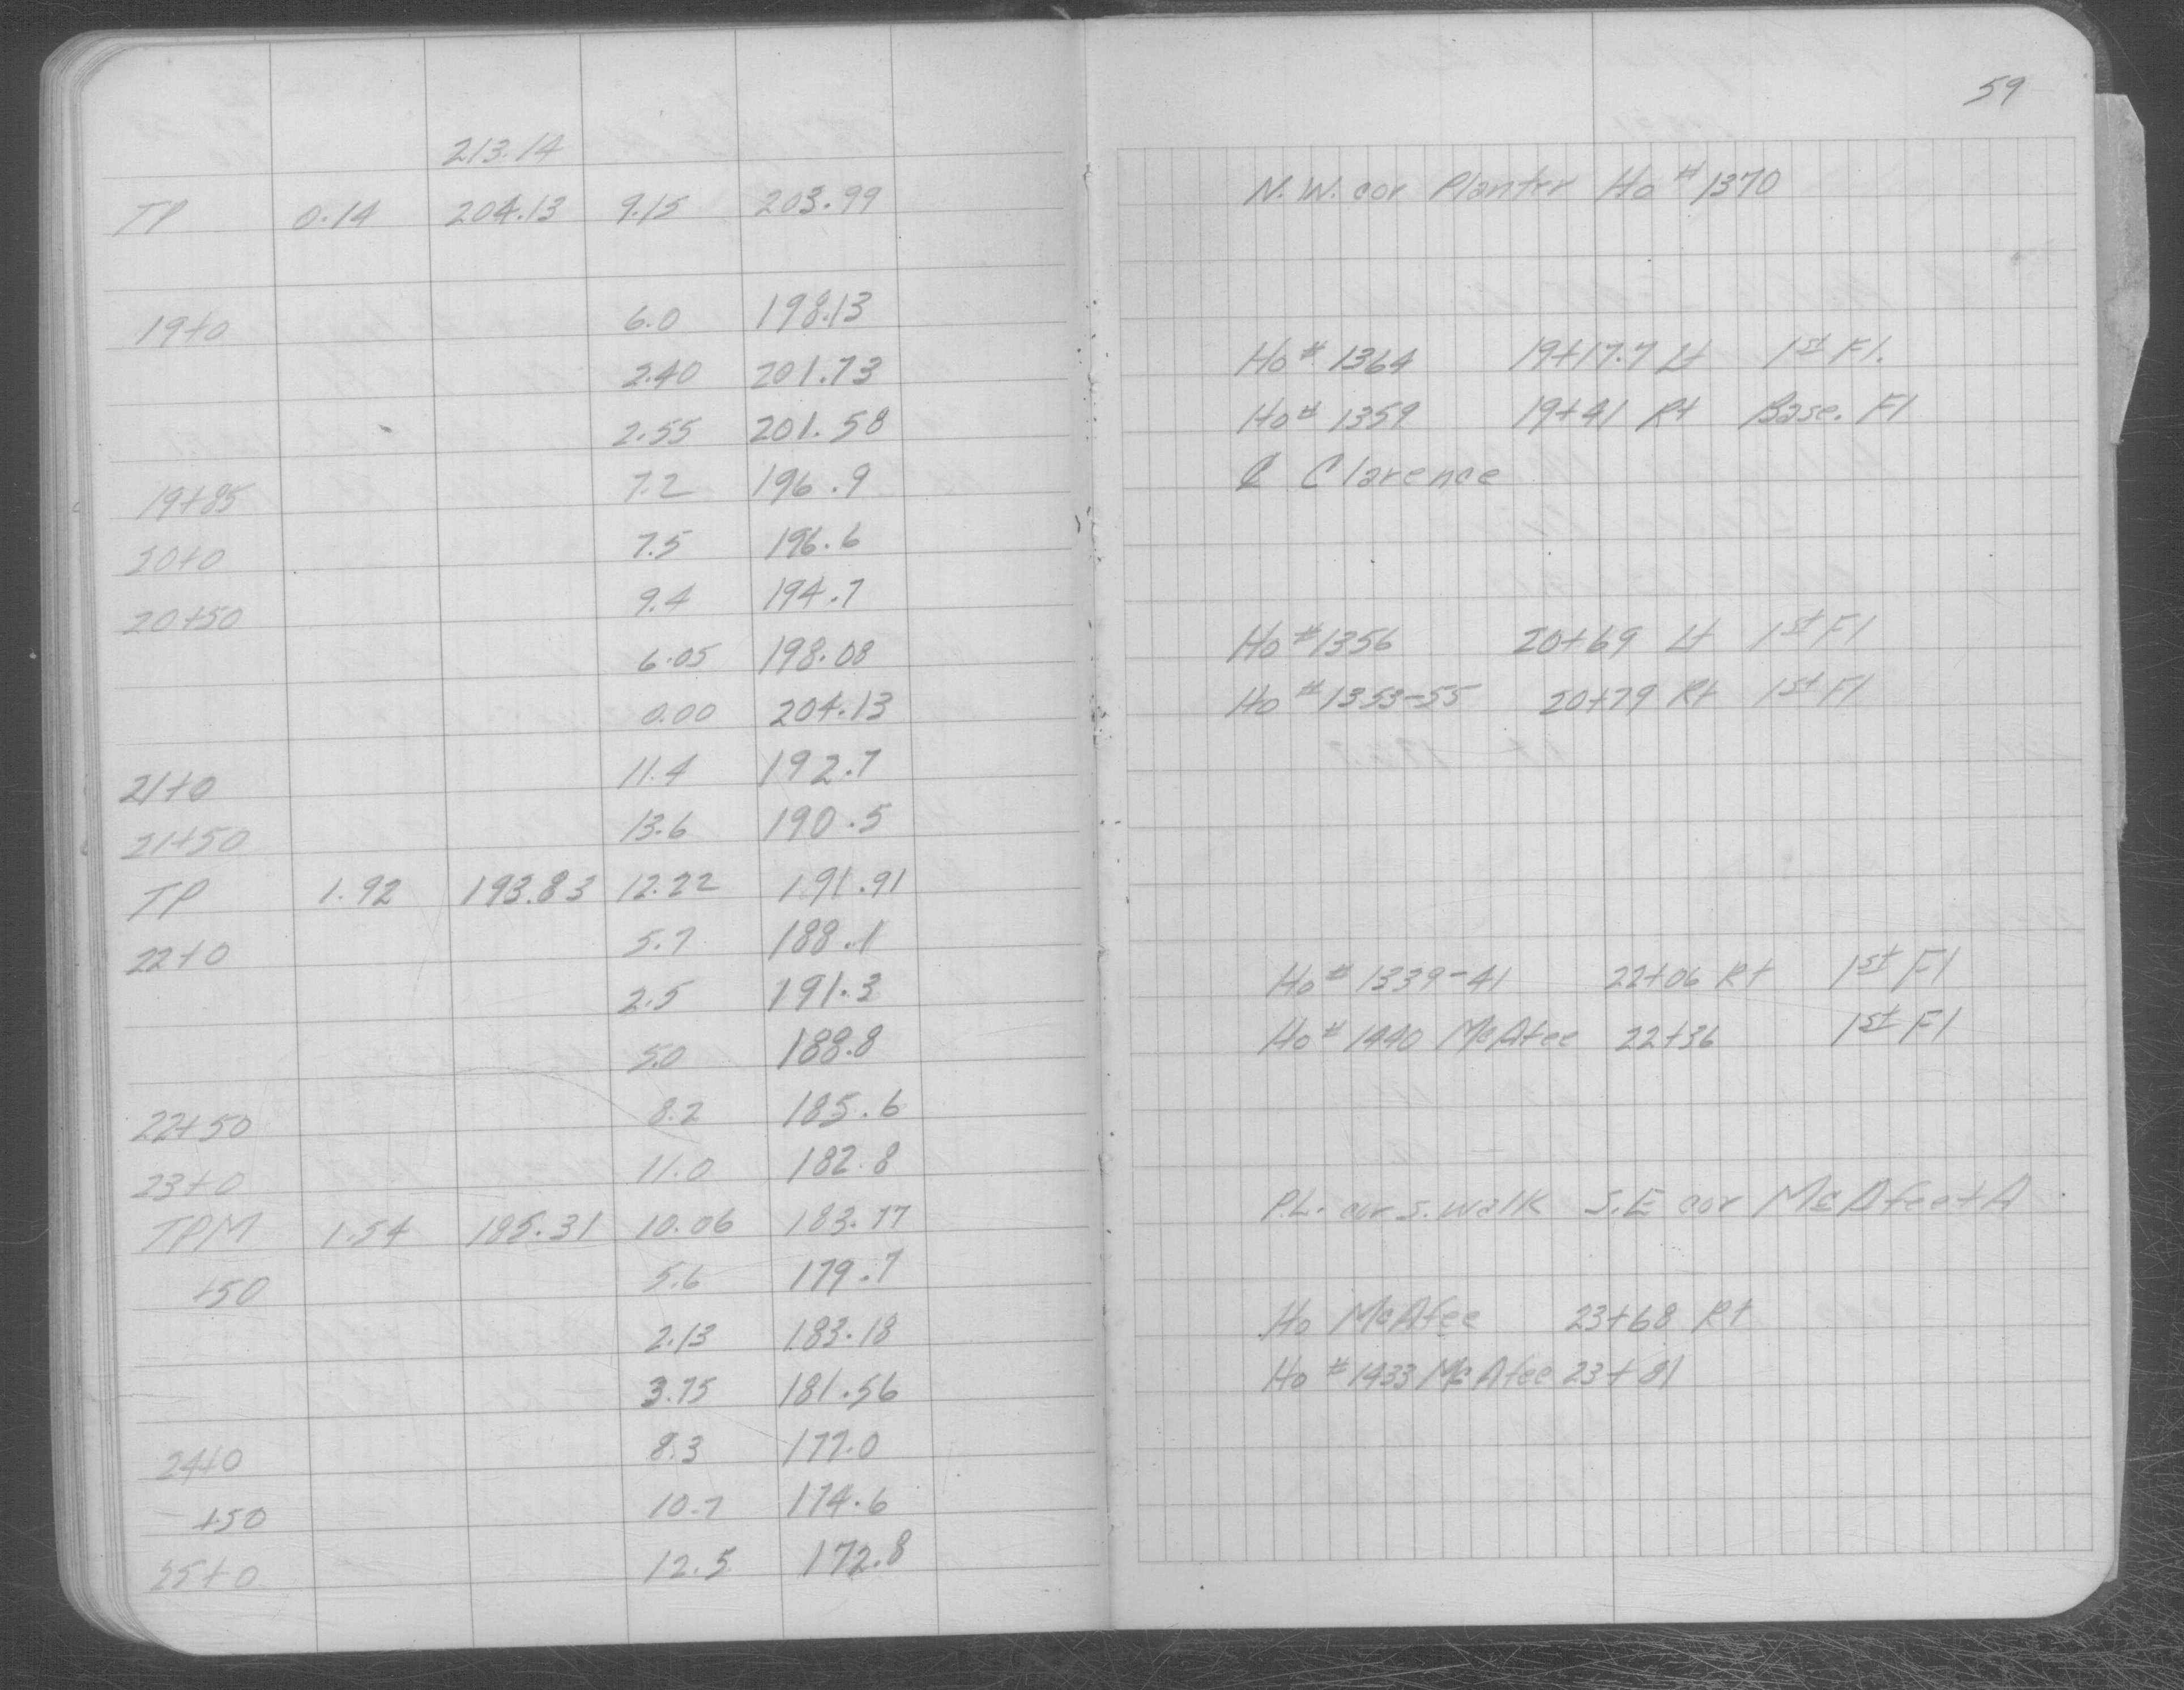 59
213.14
TP 0.14 204.13 9.15 203.99 N.W. cor Planter Ho # 1370
19+0 6.0 198.13
2.40 201.73 Ho # 1364 19+17.7 Lt 1st Fl.
2.55 201.58 Ho # 1359 19+41 Rt Base. Fl
19+85 7.2 196.9 ℄ Clarence
20+0 7.5 196.6
20+50 9.4 194.7
6.05 198.08 Ho # 1356 20+69 Lt 1st Fl
0.00 204.13 Ho # 1353-55 20+79 Rt 1st Fl
21+0 11.4 192.7
21+50 13.6 190.5
TP 1.92 193.83 12.22 191.91
22+0 5.7 188.1
2.5 191.3 Ho # 1339-41 22+06 Rt 1st Fl
5.0 188.8 Ho # 1440 McAfee 22+36 1st Fl
22+50 8.2 185.6
23+0 11.0 182.8
TPM 1.54 185.31 10.06 183.77 P.L. cor S. walk S.E cor McAfee + A
+50 5.6 179.7
2.13 183.18 Ho McAfee 23+68 Rt
3.75 181.56 Ho # 1433 McAfee 23+81
24+0 8.3 177.0
+50 10.7 174.6
25+0 12.5 172.8